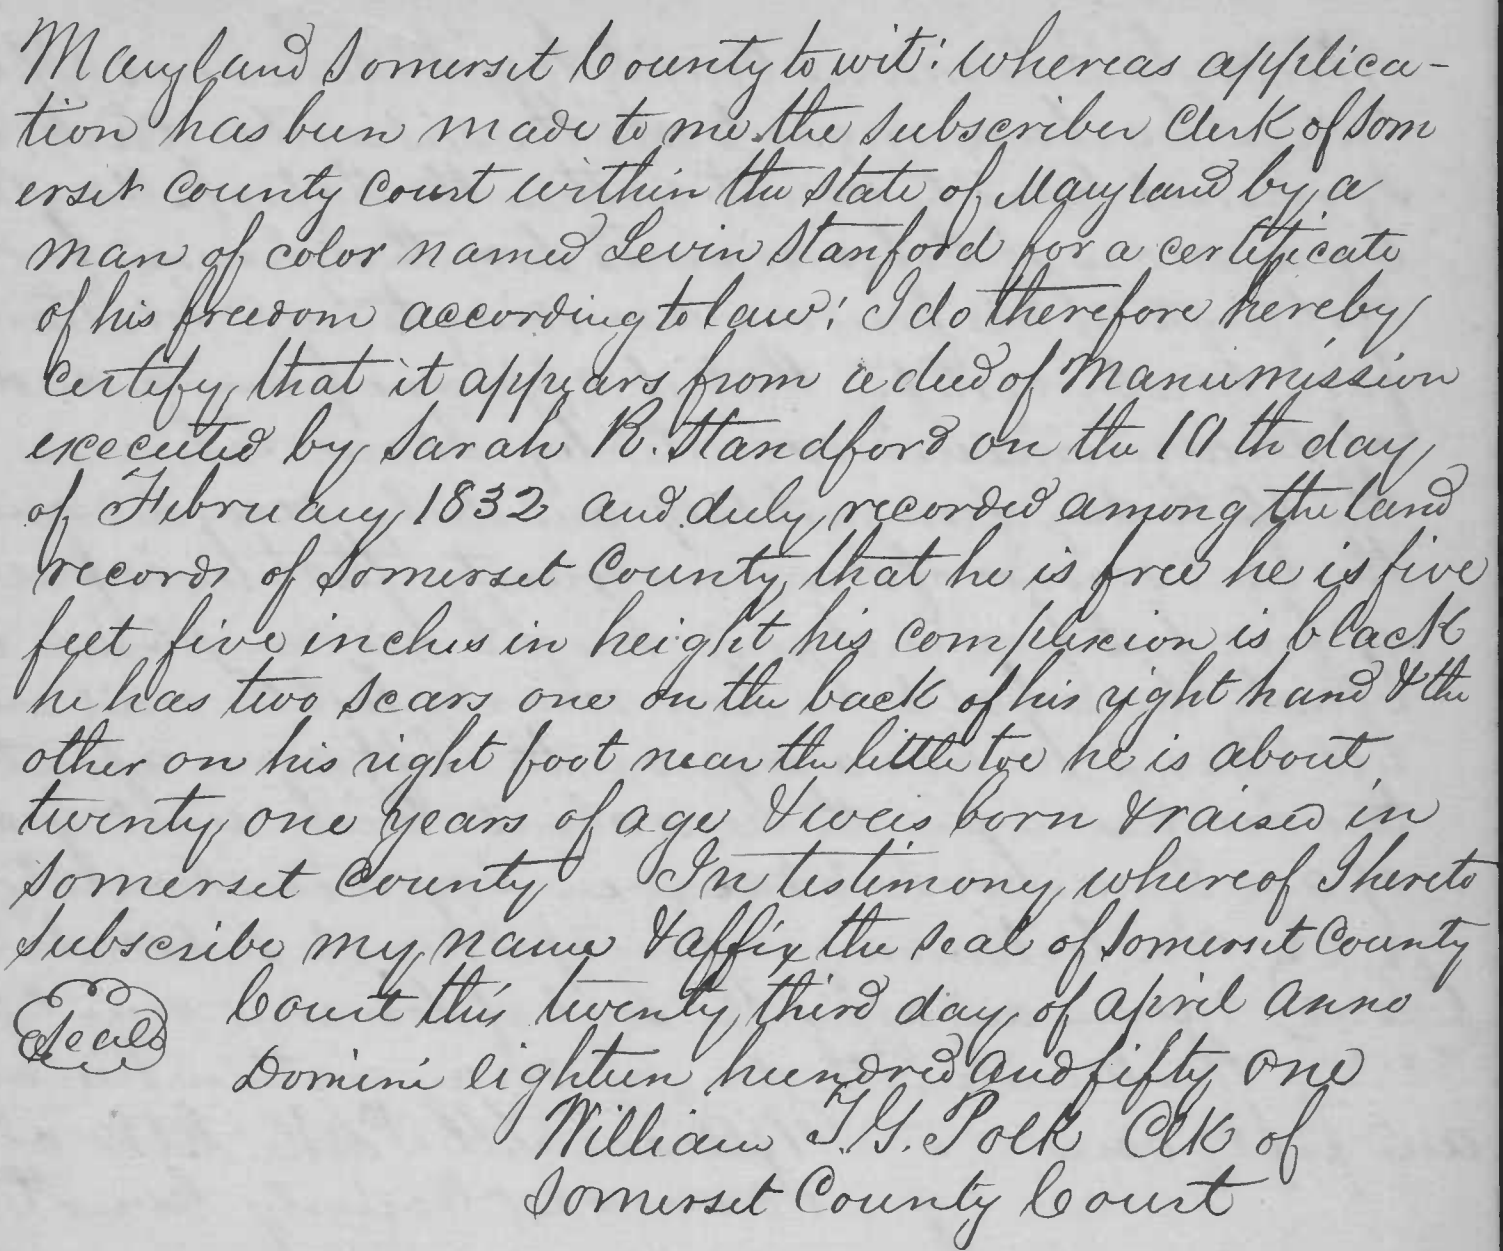 Maryland Somerset County to wit: whereas applica-
tion has been made to me the subscriber Clerk of Som
erset County Court within the State of Maryland by a
man of color named Levin Stanford for a certificate
of his freedom according to law; I do therefore hereby
certify that it appears from a deed of Manumission
executed by Sarah R. Standford on the 10th day
of February 1832 and duly recorded among the land
records of Somerset County that he is free he is five
feet five inches in height his complexion is black
he has two scars one on the back of his right hand & the
other on his right foot near the little toe he is about
twenty one years of age & was born & raised in
Somerset County In testimony whereof I hereto
subscribe my name & affix the seal of Somerset County
Seal Court this twenty third day of april anno
Domini eighteen hundred and fifty one
William T.G. Polk Clk of
Somerset County Court